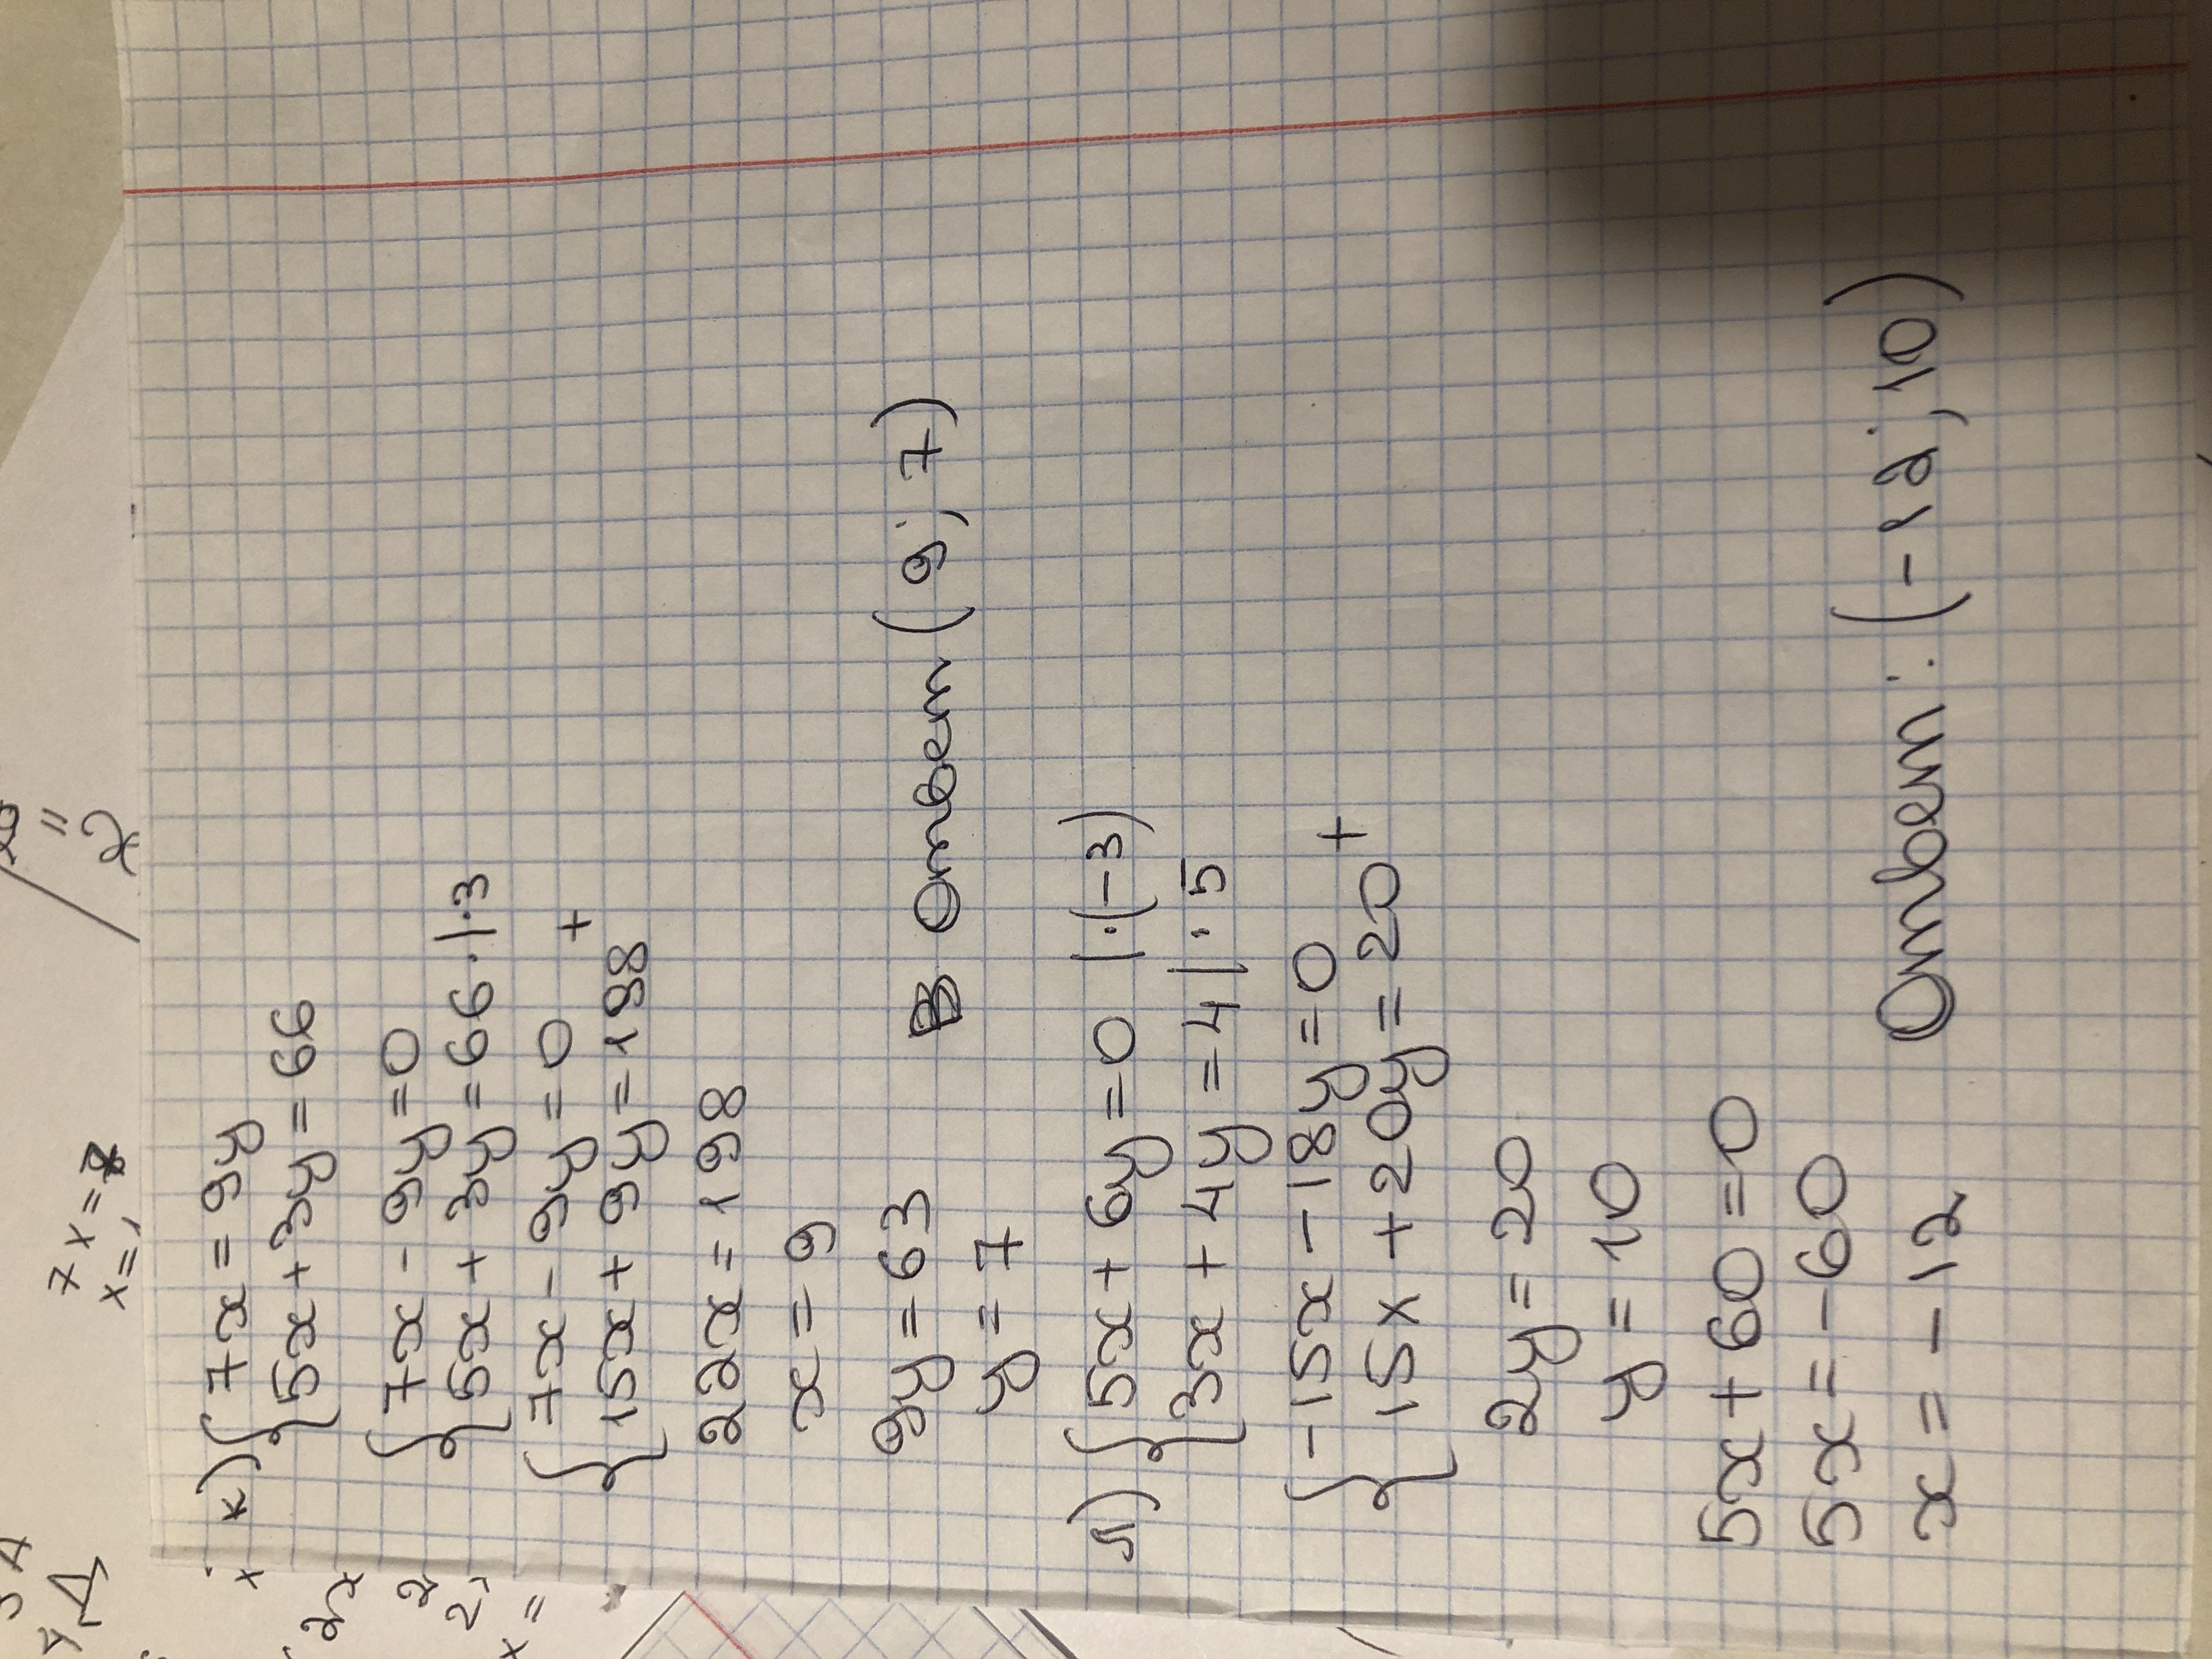 к) { 7x = 9y
{ 5x + 3y = 66
{ 7x - 9y = 0
{ 5x + 3y = 66 · | · 3
{ 7x - 9y = 0
+
{ 15x + 9y = 198
22x = 198
x = 9
9y = 63
y = 7
Ответ (9; 7)
л) { 5x + 6y = 0 | · (-3)
{ 3x + 4y = 4 | · 5
{ -15x - 18y = 0
+
{ 15x + 20y = 20
2y = 20
y = 10
5x + 60 = 0
5x = -60
x = -12
Ответ: (-12; 10)
7x =
x =
"
2